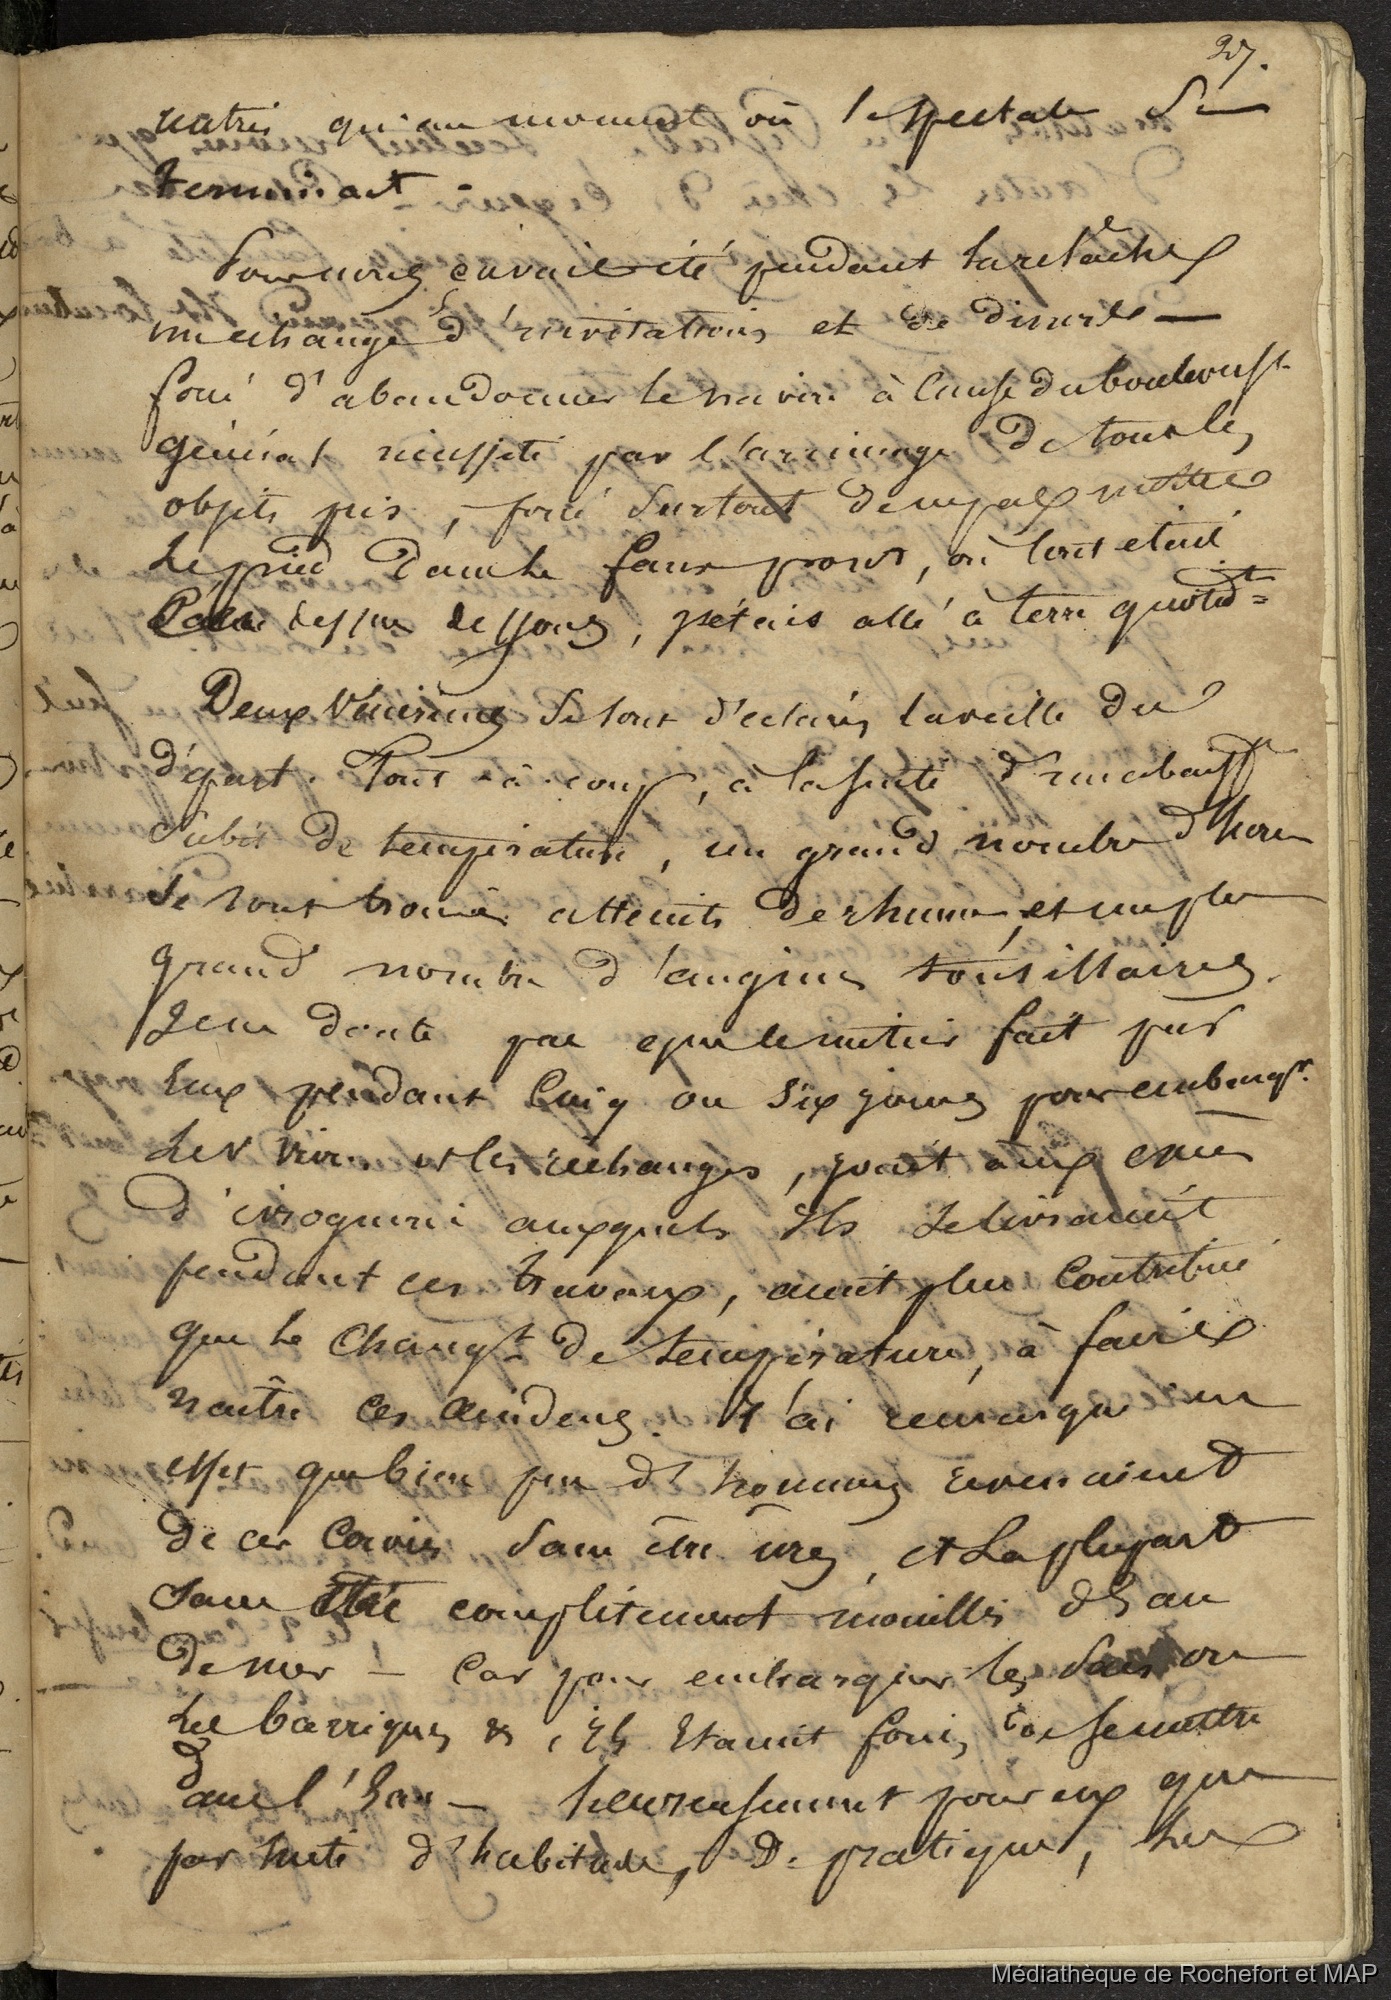 27.
entrés qu'au moment où le spectacle se
terminait -
Pour nous, ç'avait été pendant la relâche
un échange d'invitations et de diners —
forcé d'abandonner le navire à cause du boulevers.t
général nécessité par l'arrimage de tous les
objets pris, forcé surtout de ne pas mettre
le pied dans le faux pont, où tout était
sens dessus dessous, j'étais allé à terre quotid.t =
Deux vénériens se sont déclarés la veille du
départ. Tout-à-coup, à la suite d'un abaiss.t
subit de température, un grand nombre d'hom
se sont trouvés atteints de rhume, et un plus
grand nombre d'angines tonsillaires.
Je ne doute pas que le métier fait par
eux pendant cinq ou six jours pour embarq.r
les vivres et les rechanges, joint aux excès
d'ivrognerie auxquels ils se livraient
pendant ces travaux, aient plus contribué
que le chang.t de température, à faire
naître ces accidens. J'ai remarqué en
effet que bien peu d'hommes revenaient
de ces corvées sans être ivres, et la plupart
sans être complètement mouillés d'eau
de mer — Car pour embarquer les sacs ou
les barriques &, ils étaient forcés de se mettre
dans l'eau — heureusement pour eux que
par suite d'habitude, de pratique, les
Médiathèque de Rochefort et MAP